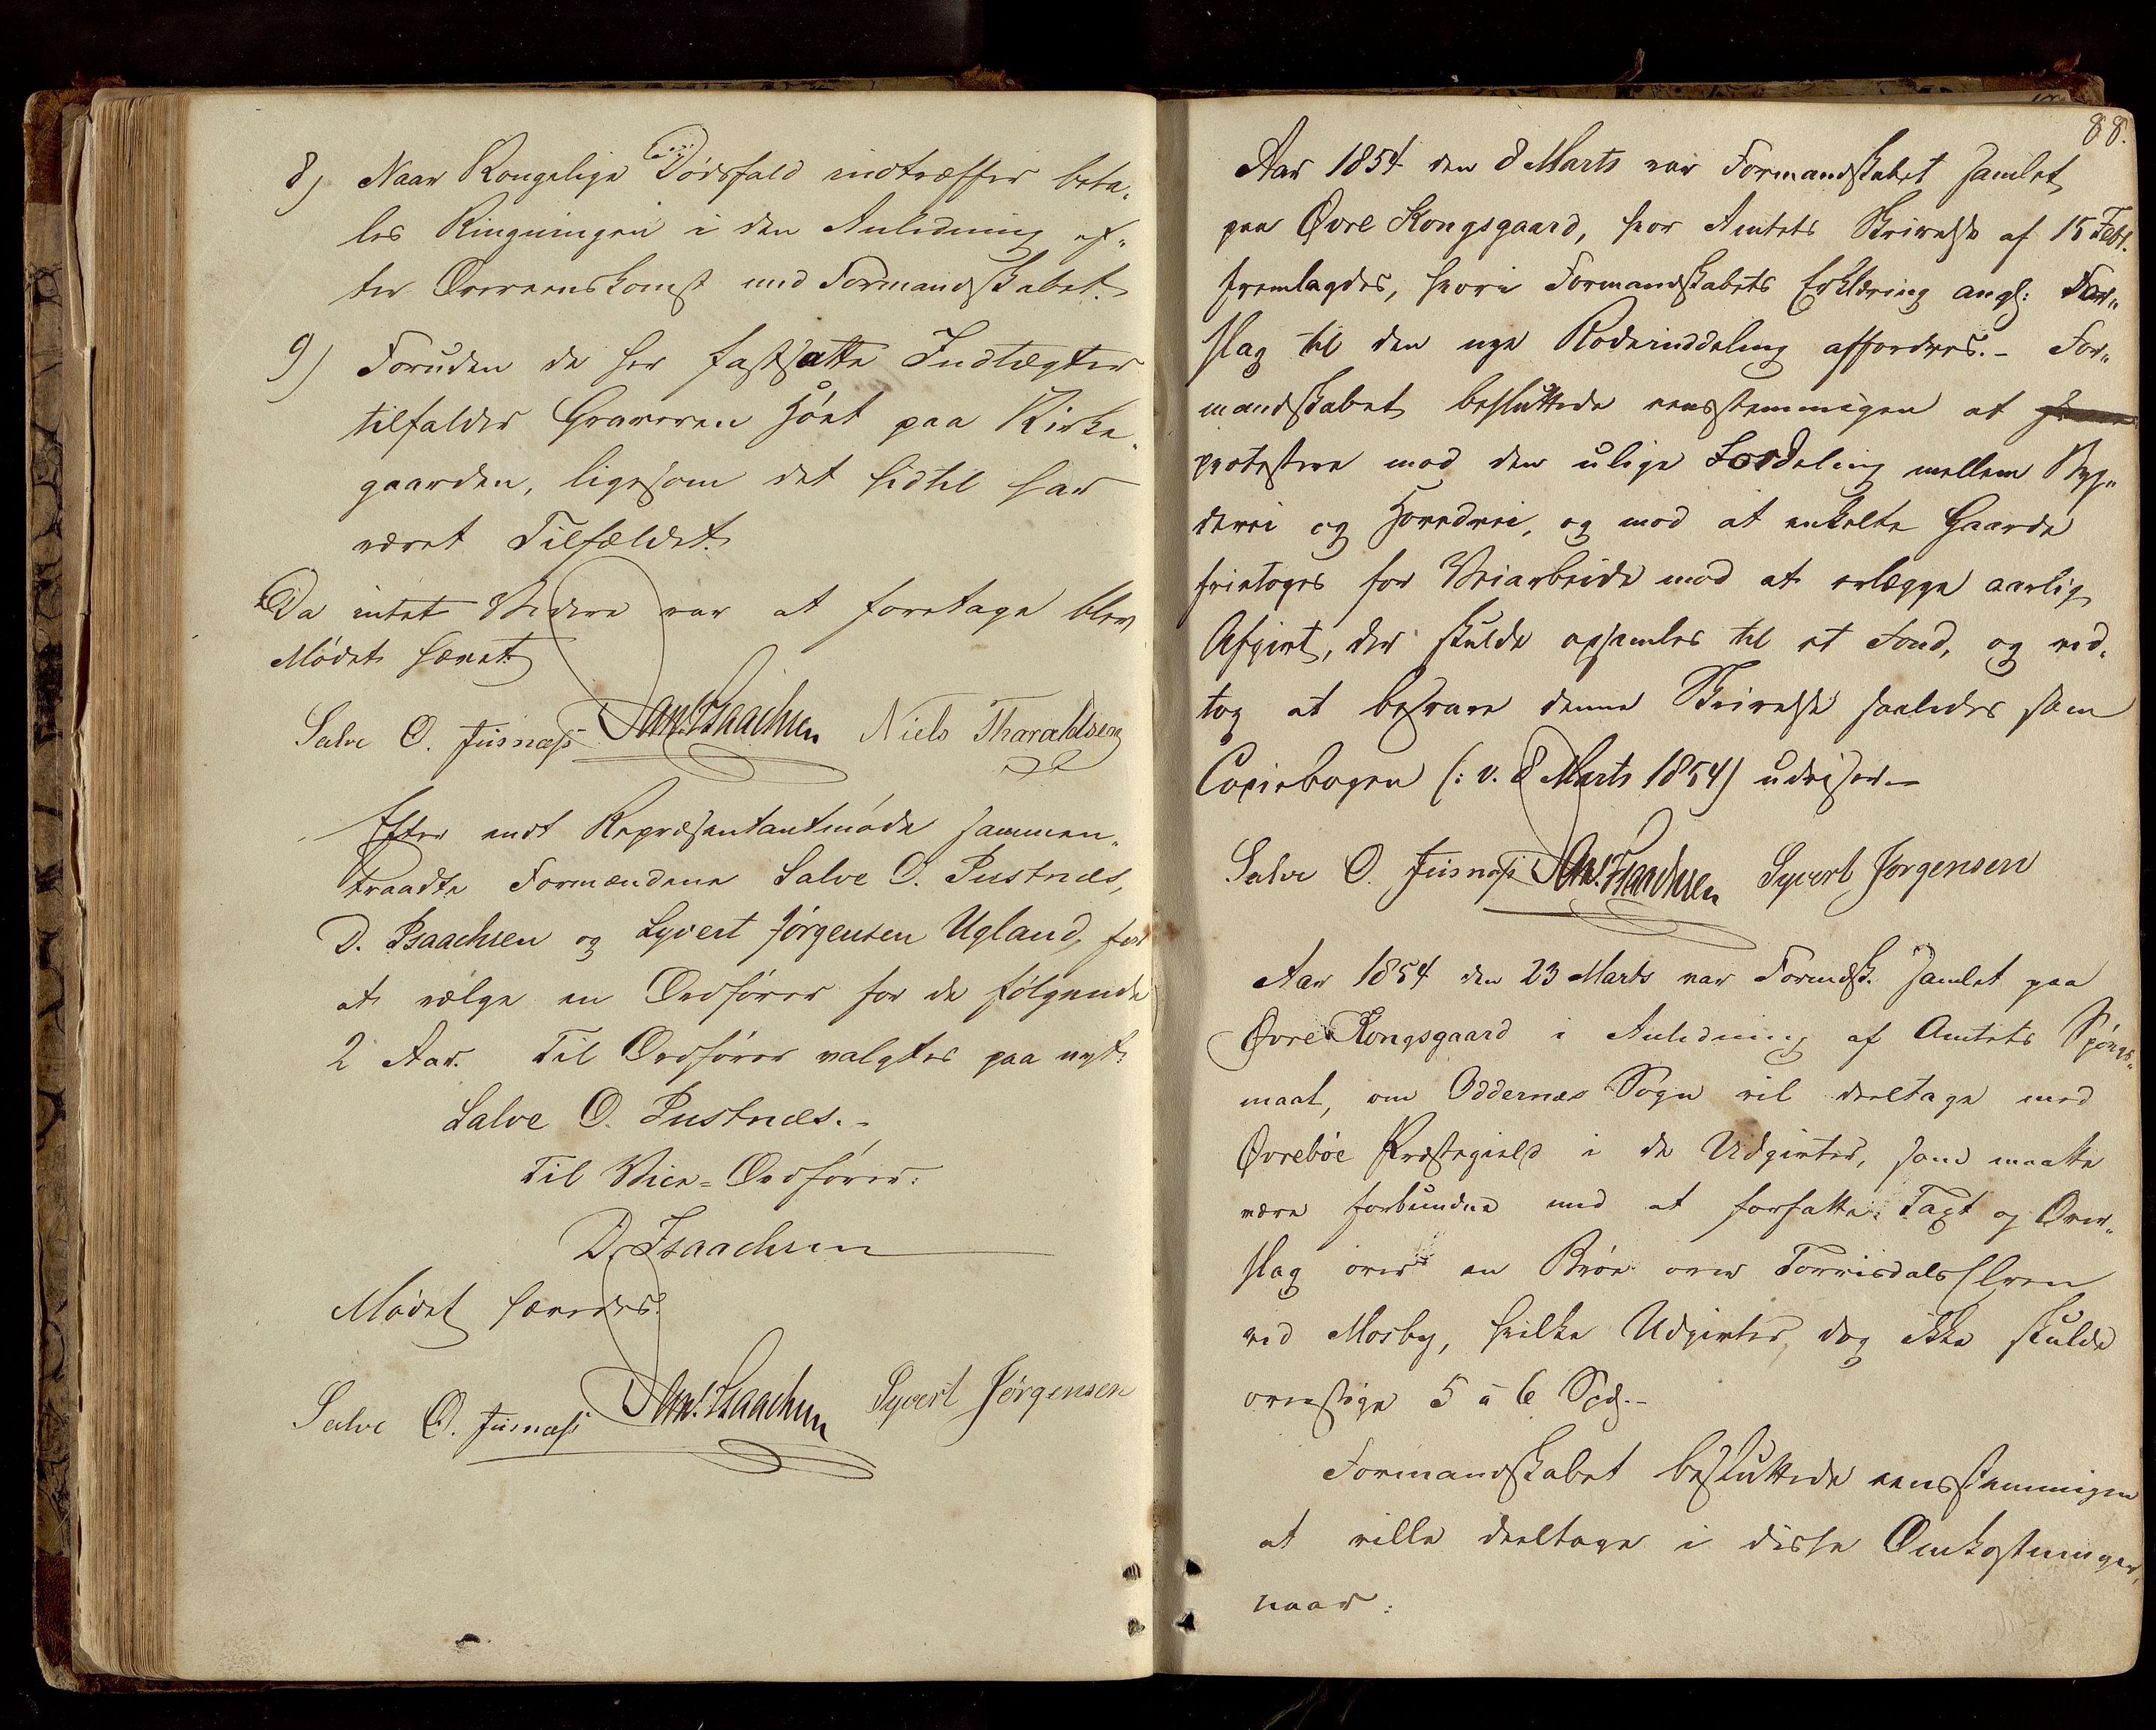 8) Naar Kongelige Dödsfald indtræffer beta„
les Ringningen i den Anledning ef„
ter Overeenskomst med Formandskabet.
9) Foruden de her fastsatte Indtægter
tilfalder Graveren Höet paa Kirke„
gaarden, ligesom det hidtil har
været Tilfældet.
Da intet Videre var at foretage blev
Mödet hævet.
Salve O. Jusnæs Dan. Isaachsen Niels Tharaldsen
Efter endt Repræsentantmöde sammen„
traadte Formændene Salve O. Justnæs,
D. Isaachsen og Syvert Jörgensen Ugland, for
at vælge en Ordförer for de fölgende
2 Aar. Til Ordförer valgtes paa nyt:
Salve O. Justnæs.-
Til Vice-Ordförer:
D. Isaachsen
Mödet hævedes.
Salve O. Jusnæs Dan. Isaachsen Syvert Jörgensen
88.
Aar 1854 den 8 Marts var Formandskabet samlet
paa Øvre Kongsgaard, hvor Amtets Skrivelse af 15 Febr.
fremlagdes, hvori Formandskabets Erklæring angl: For„
slag til den nye Rodeinddeling affordres.- For„
mandskabet besluttede eensstemmigen at
protestere mod den ulige Fordeling mellem Byg„
devei og Hovedvei, og mod at enkelte Gaarde
fritoges for Veiarbeide mod at erlægge aarlig
Afgivt, der skulde opsamles til et Fond, og ved„
tog at besvare denne Skrivelse saaledes som
Copiebogen (: v. 8 Marts 1854) udviser.-
Salve O. Jusnæs Dan. Isaachsen Syvert Jörgensen
Aar 1854 den 23 Marts var Formdsk. samlet paa
Øvre Kongsgaard i Anledning af Amtets Spörgs„
maal, om Oddernæs Sogn vil deeltage med
Øvreböe Præstegield i de Udgivter, som maatte
være forbundne med at forfatte Taxt og Over„
slag over en Broe over Torrisdalselven
ved Mosby, hvilke Udgivter dog ikke skulde
overstige 5 a 6 Spd.-
Formandskabet besluttede eensstemmigen
at ville deeltage i disse Omkostninger,
naar: